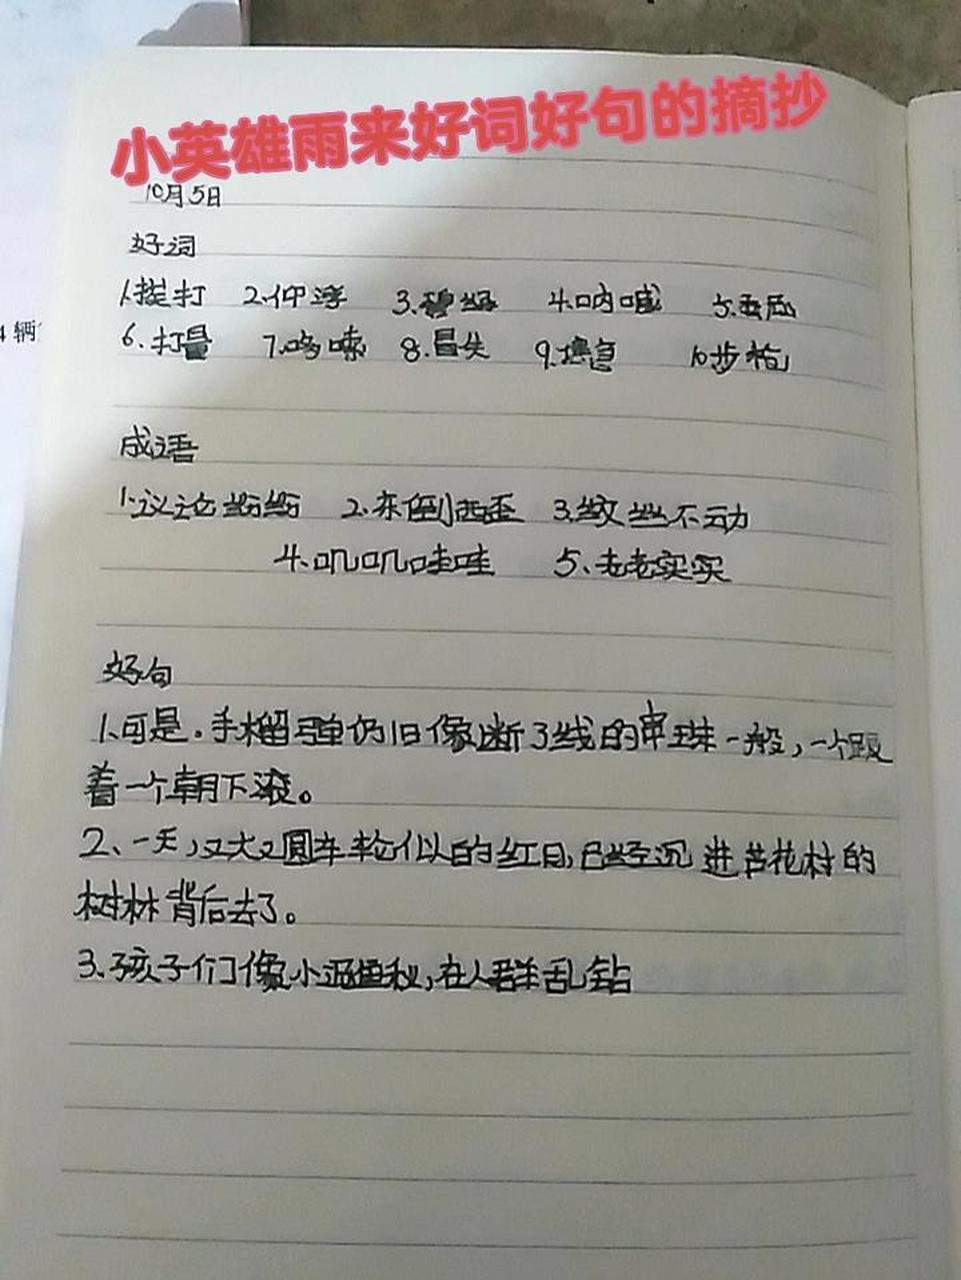 小英雄雨来好词好句的摘抄
10月5日
好词
1.挨打 2.仰浮 3. 4.呐喊 5.
6.打量 7.哆嗦 8.冒失 9. 10步枪
成语
1.议论纷纷 2.东倒西歪 3.纹丝不动
4.叽叽哇哇 5、老老实实
好句
1.可是.手榴弹仍旧像断了线的串珠一般,一个跟
着一个朝下滚。
2、一天,又大又圆车轮似的红日,已经沉进芦花村的
树林背后去了。
3.孩子们像小泥鱼秋,在人群乱钻
4 辆